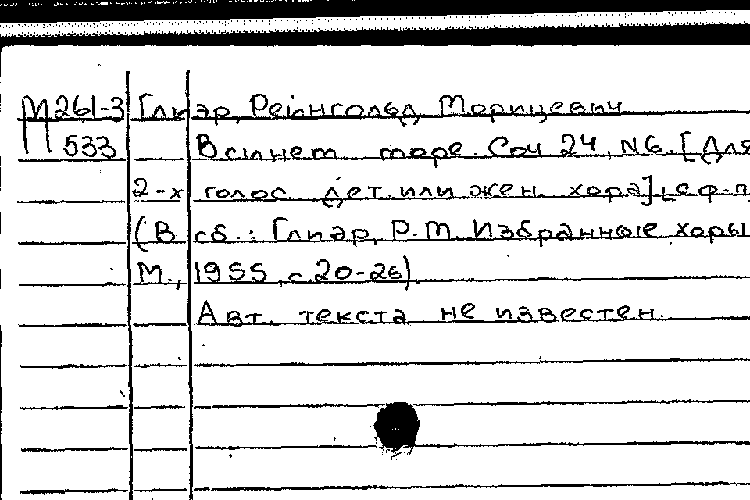 М261-3 Глиэр, Рейнгольд Морицевич
П533 В синем море. Соч 24, N6. [Для
2-х голос дет. или жен. хора] с ф-п
(В сб.: Глиэр, Р.М. Избранные хоры
М., 1955, с.20-26)
Авт. текста не известен